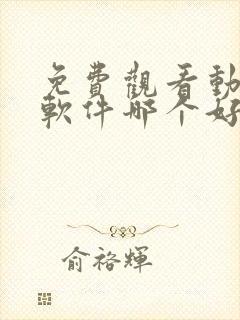 免費觀看動
軟件哪个好
俞裕輝